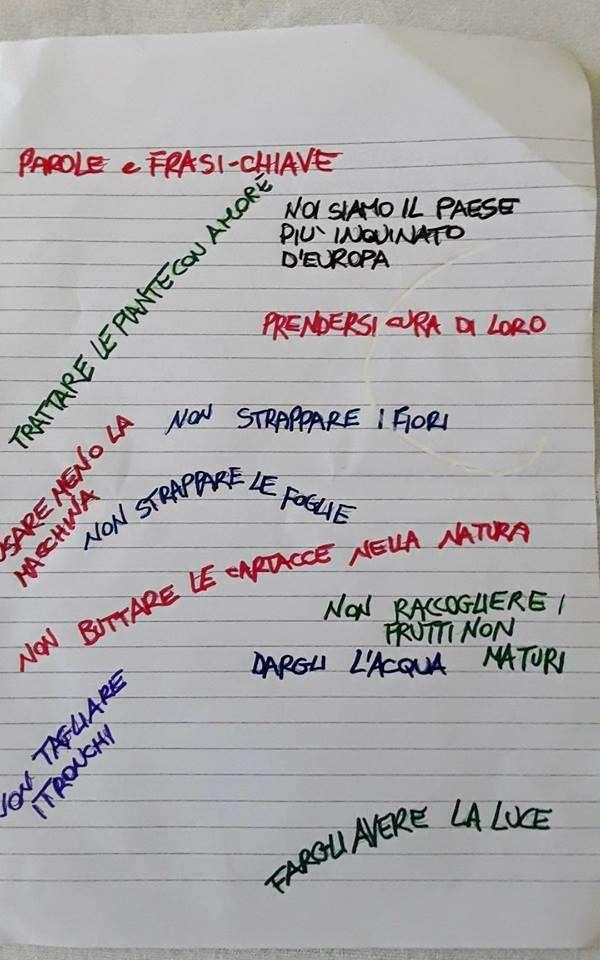 PAROLE e FRASI-CHIAVE
TRATTARE LE PIANTE CON AMORE
NOI SIAMO IL PAESE
PIU' INQUINATO
D'EUROPA
PRENDERSI CURA DI LORO
USARE MENO LA
MACCHINA
NON STRAPPARE I FIORI
NON STRAPPARE LE FOGLIE
NON BUTTARE LE CARTACCE NELLA NATURA
NON RACCOGLIERE I
FRUTTI NON
MATURI
DARGLI L'ACQUA
NON TAGLIARE
I TRONCHI
FARGLI AVERE LA LUCE